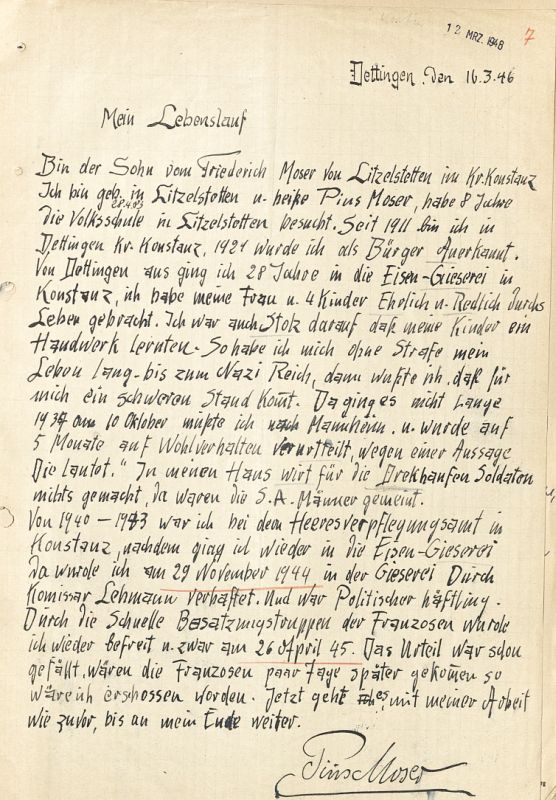 12 MRZ. 1948
7
Dettingen, den 16.3.46
Mein Lebenslauf
Bin der Sohn vom Friederich Moser von Litzelstetten im Kr. Konstanz
Ich bin geb. in Litzelstetten u. heiße Pius Moser, habe 8 Jahre
die Volksschule in Litzelstetten besucht. Seit 1911 bin ich in
Dettingen Kr. Konstanz, 1921 wurde ich als Bürger Anerkannt.
Von Dettingen aus ging ich 28 Jahre in die Eisen-Gieserei in
Konstanz, ich habe meine Frau u. 4 Kinder Ehrlich u. Redlich durchs
Leben gebracht. Ich war auch Stolz darauf daß meine Kinder ein
Handwerk lernten. So habe ich mich ohne Strafe mein
Leben lang bis zum Nazi Reich, dann wußte ich, daß für
mich ein schweren Stand Komt. Da ging es nicht Lange
am 10 Oktober mußte ich nach Mannheim. u. wurde auf
5 Monate auf Wohlverhalten verurtteilt, wegen einer Aussage
Die lautet." In meinen Haus wirt für die Drekhaufen Soldaten
nichts gemacht, da waren die S.A. Männer gemeint.
Von 1940 – 1943 war ich bei dem Heeresverpflegungsamt in
Konstanz, nachdem ging ich wieder in die Eisen-Gieserei
da wurde ich am 29 November 1944 in der Gieserei Durch
Komissar Lehmann verhaftet. Und war Politischer häftling.
Durch die Schnelle Besatzungstruppen der Franzosen wurde
ich wieder befreit u. zwar am 26 April 45. Das Urteil war schon
gefällt, wären die Franzosen paar Tage später gekomen so
wäre ich erschossen worden. Jetzt geht es mit meiner Arbeit
wie zuvor, bis an mein Ende weiter.
Pius Moser